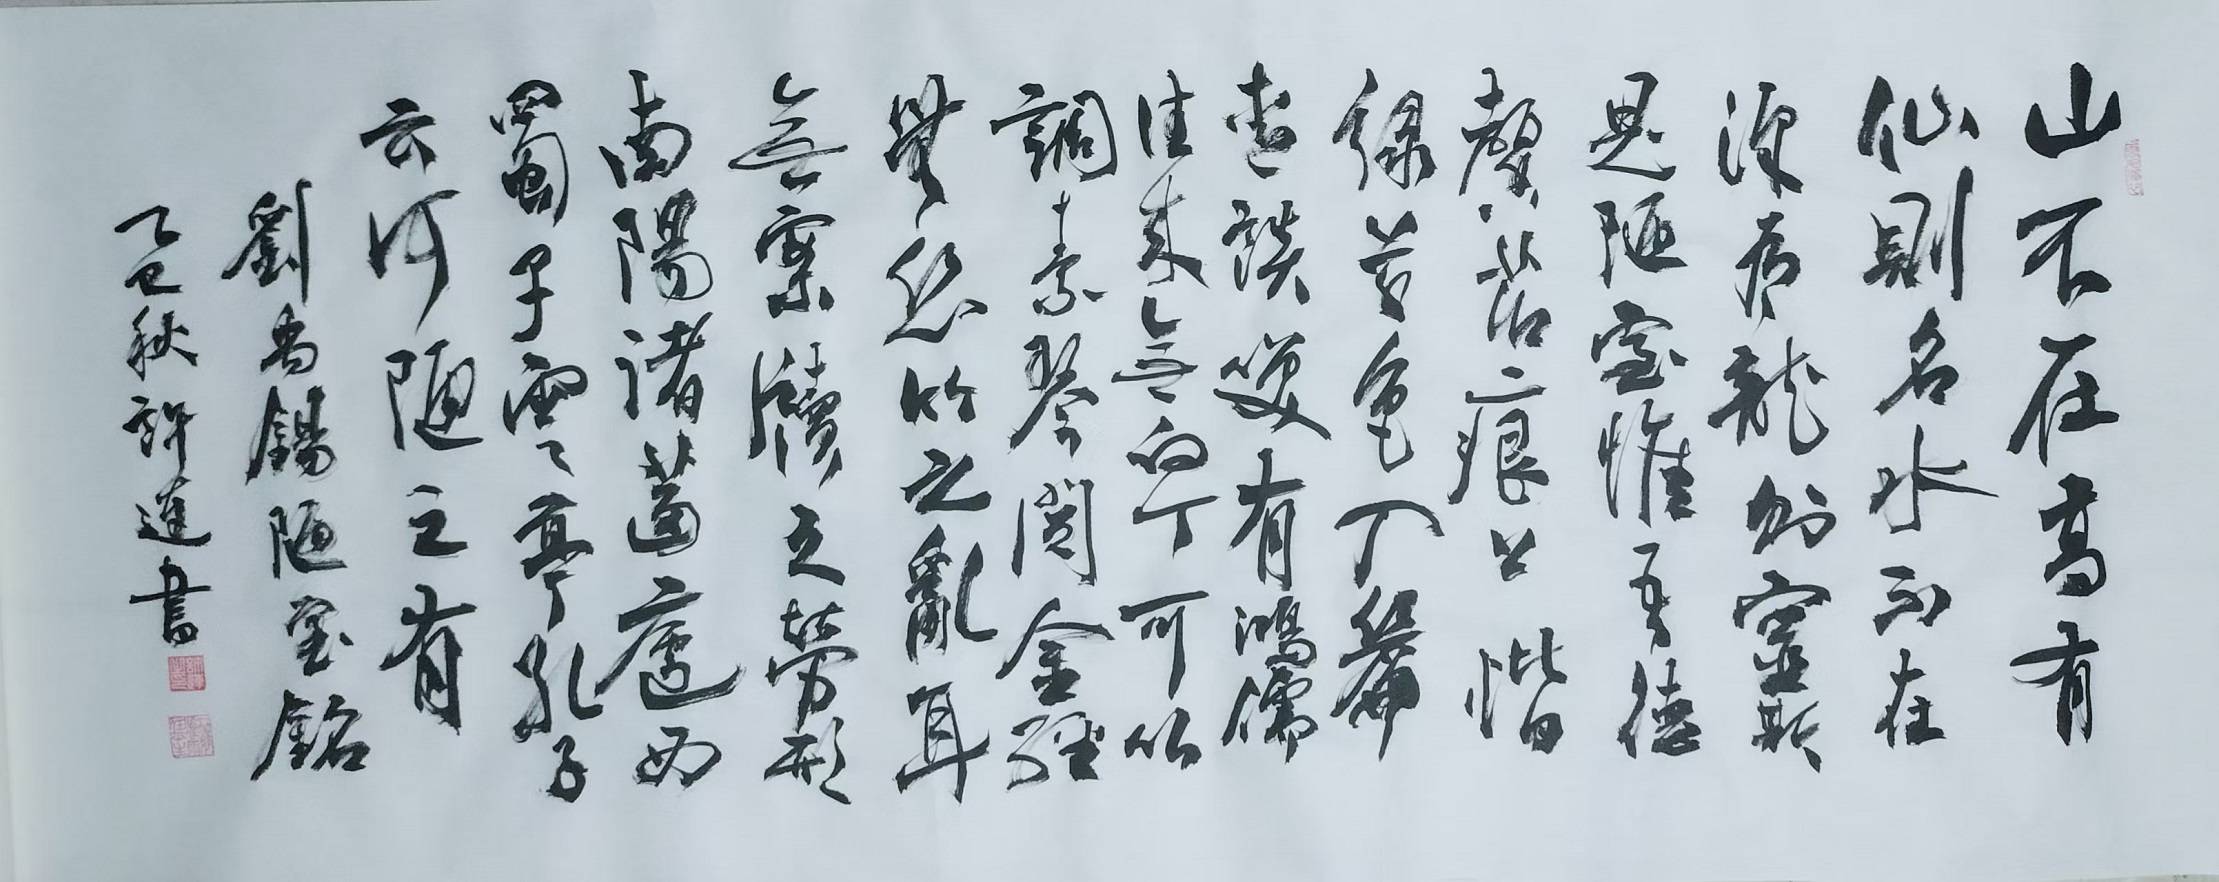 山不在高有
仙則名水不在
深有龍則靈斯
是陋室惟吾德
馨苔痕上階
綠草色入簾
青談笑有鴻儒
往来無白丁可以
調素琴閱金經
無丝竹之亂耳
無案牘之勞形
南陽諸葛廬西
蜀子雲亭孔子
云何陋之有
劉禹錫陋室銘
乙巳秋許書